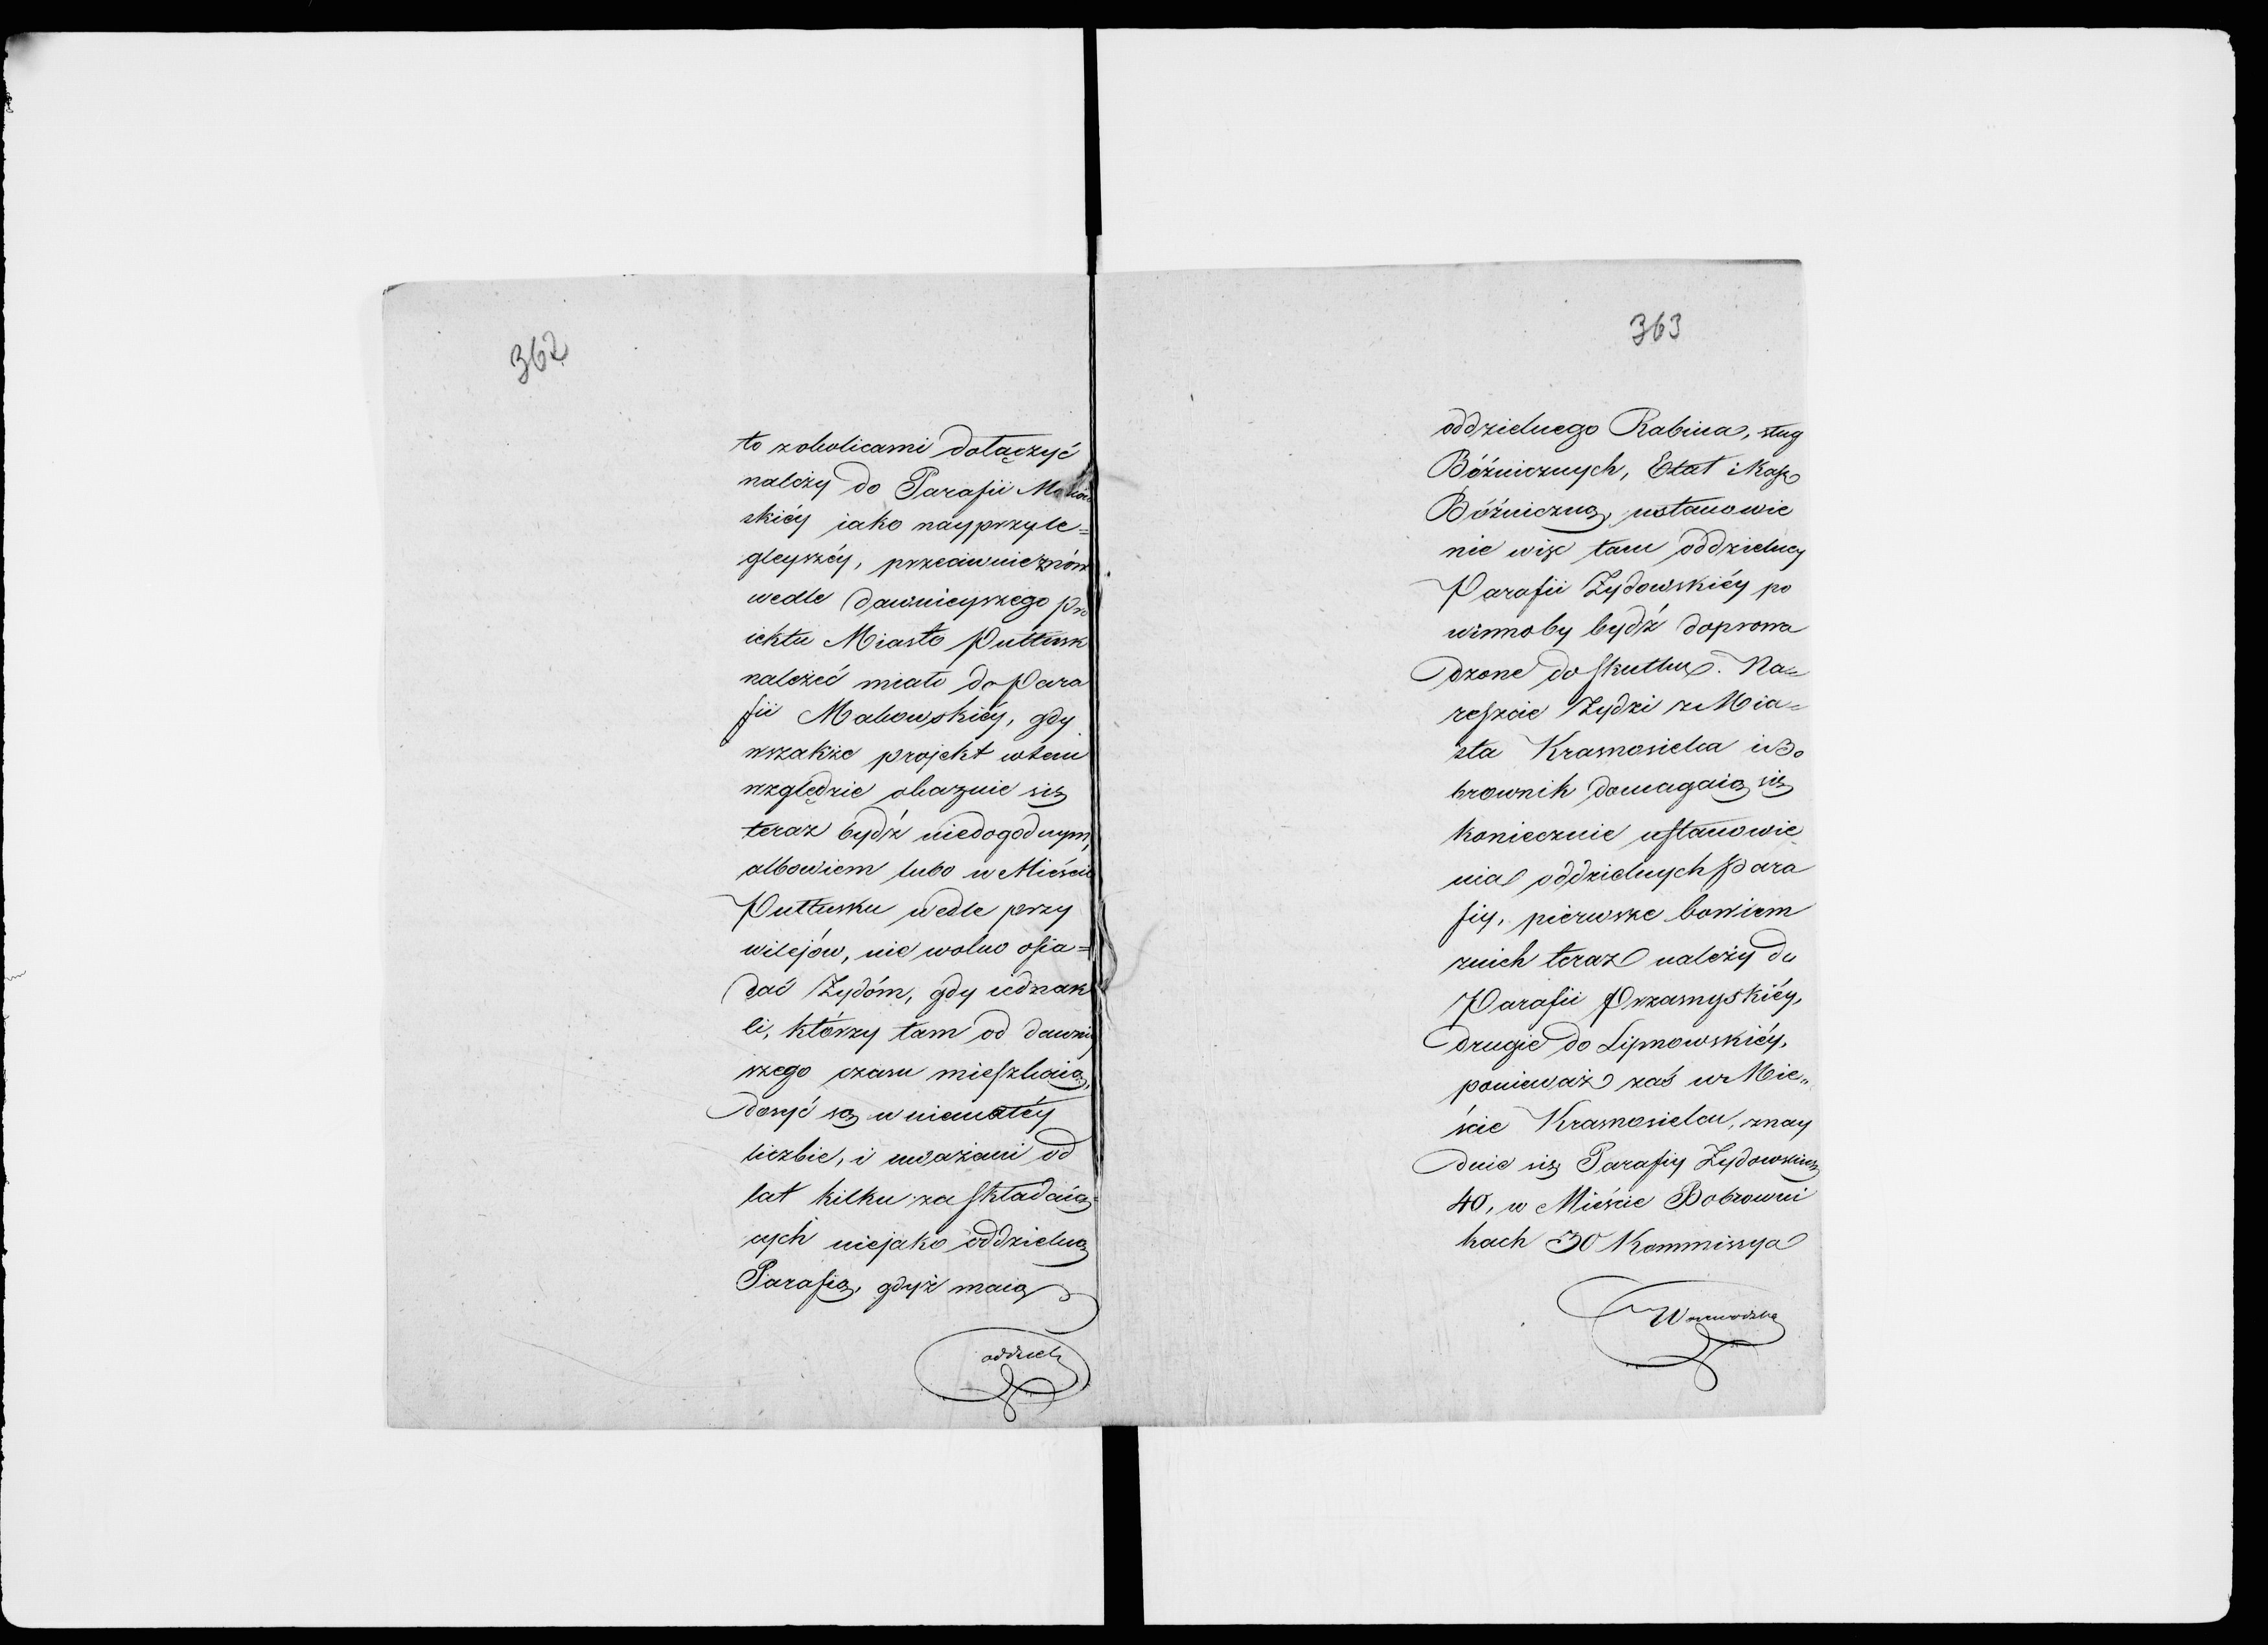 362
to zokolicami dołączyć
należy do Parafii Makow
skiéy iako nayprzyle=
gleyszéy, przeciwnie znów
wedle dawnieyszego pro
iektu Miasto Pułtusk
należéć miało do Para
fii Makowskiéy, gdy
wszakże projekt wtem
względzie okazuie się
teraz bydź niedogodnym,
albowiem lubo w Mieście
Pułtusku wedle przy
wilejów, nie wolno osia=
dać Żydóm, gdy iednak
ci, którzy tam od dawniey
szego czasu mieszkaią,
dosyć są w niemałéy
liczbie, i uważani od
lat kilku za składaią=
cych niejako oddzielną
Parafią, gdyż maią
oddziel
363
oddzielnego Rabina, sług
Bóżnicznych, Etat i Kassę
Bóżniczną, ustanowie
nie więc tam oddzielney
Parafii Żydowskiéy po
winnoby bydź doprowa
dzone do skutku. Na=
reszcie Żydzi z Mia=
sta Krasnosielca i Bo
brownik domagaią się
koniecznie ustanowie
nia oddzielnych Para
fiy, pierwsze bowiem
znich teraz należy do
Parafii Przasnyskiéy,
drugie do Lipnowskiéy,
ponieważ zaś w Mie„
ście Krasnosielcu, znay
duie się Parafiy Żydowskich
40, w Mieście Bobrowni
kach 30 Kommissya
Woiewodzka